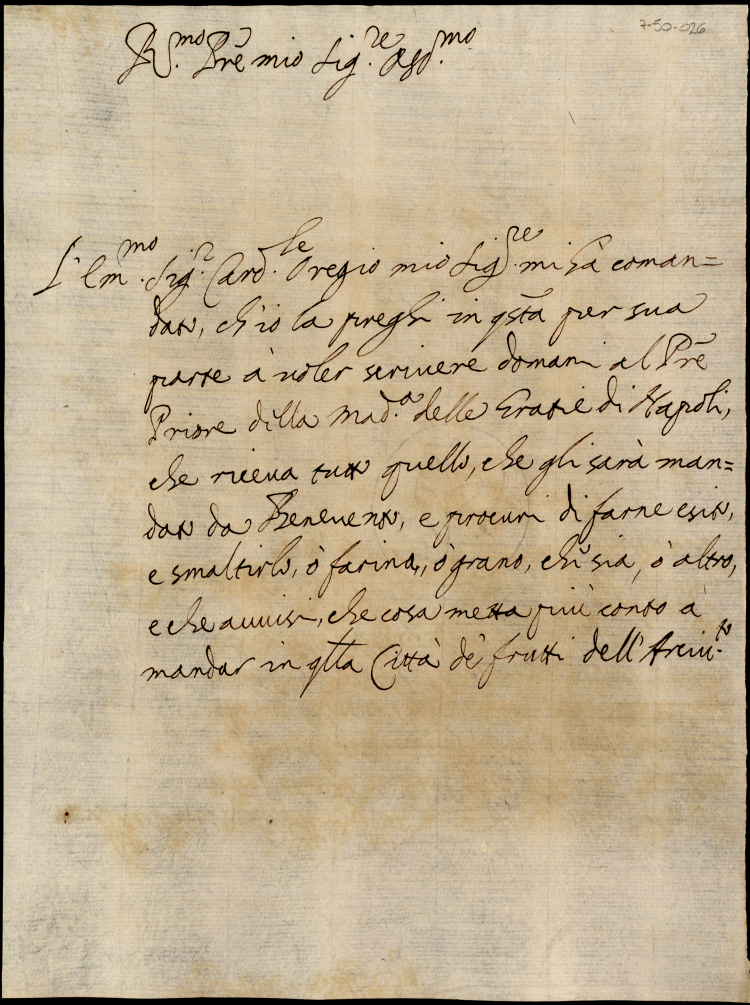 7-50-026
R.mo Prē mio Sig.re Oss.mo
L'Em.mo Sig.r Card.le Oregio mio Sig.re mi hà coman=
dato, ch'io la preghi in qsta per sua
parte à voler scrivere domani al Prē
Priore della Mad.a delle Gratie di Napoli,
che riceva tutto quello, che gli sarà man=
dato da Benevento, e procuri di farne esito,
e smaltirlo, ò farina, ò grano, chi sia, ò altro,
e che avvisi, che cosa metta più conto à
mandar in qlla Città de' frutti dell'Arciv.to